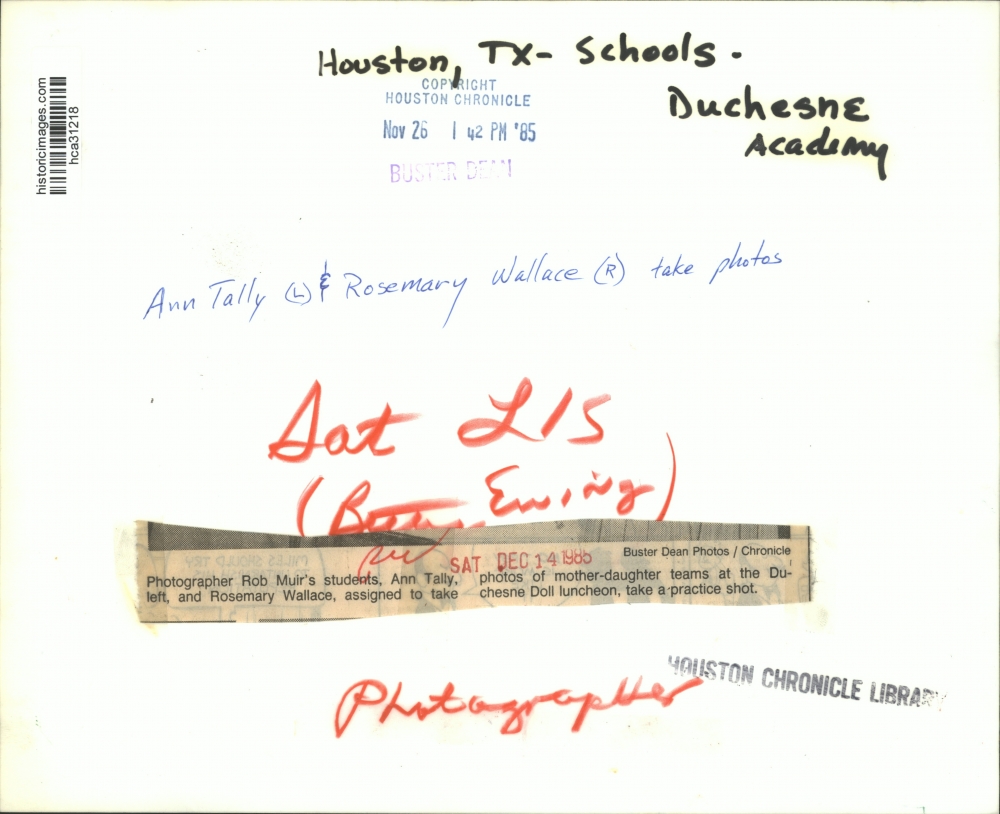 Houston, TX- Schools.
COPYRIGHT
HOUSTON CHRONICLE
Nov 26 1 42 PM '85
BUSTER DEAN
Duchesne
Academy
historicimages.com
hca31218
Ann Tally (L) & Rosemary Wallace (R) take photos
Sat L15
( Ewing)
SAT DEC 14 1985
Buster Dean Photos / Chronicle
Photographer Rob Muir's students, Ann Tally,
left, and Rosemary Wallace, assigned to take
photos of mother-daughter teams at the Du-
chesne Doll luncheon, take a practice shot.
HOUSTON CHRONICLE LIBRARY
Photographer